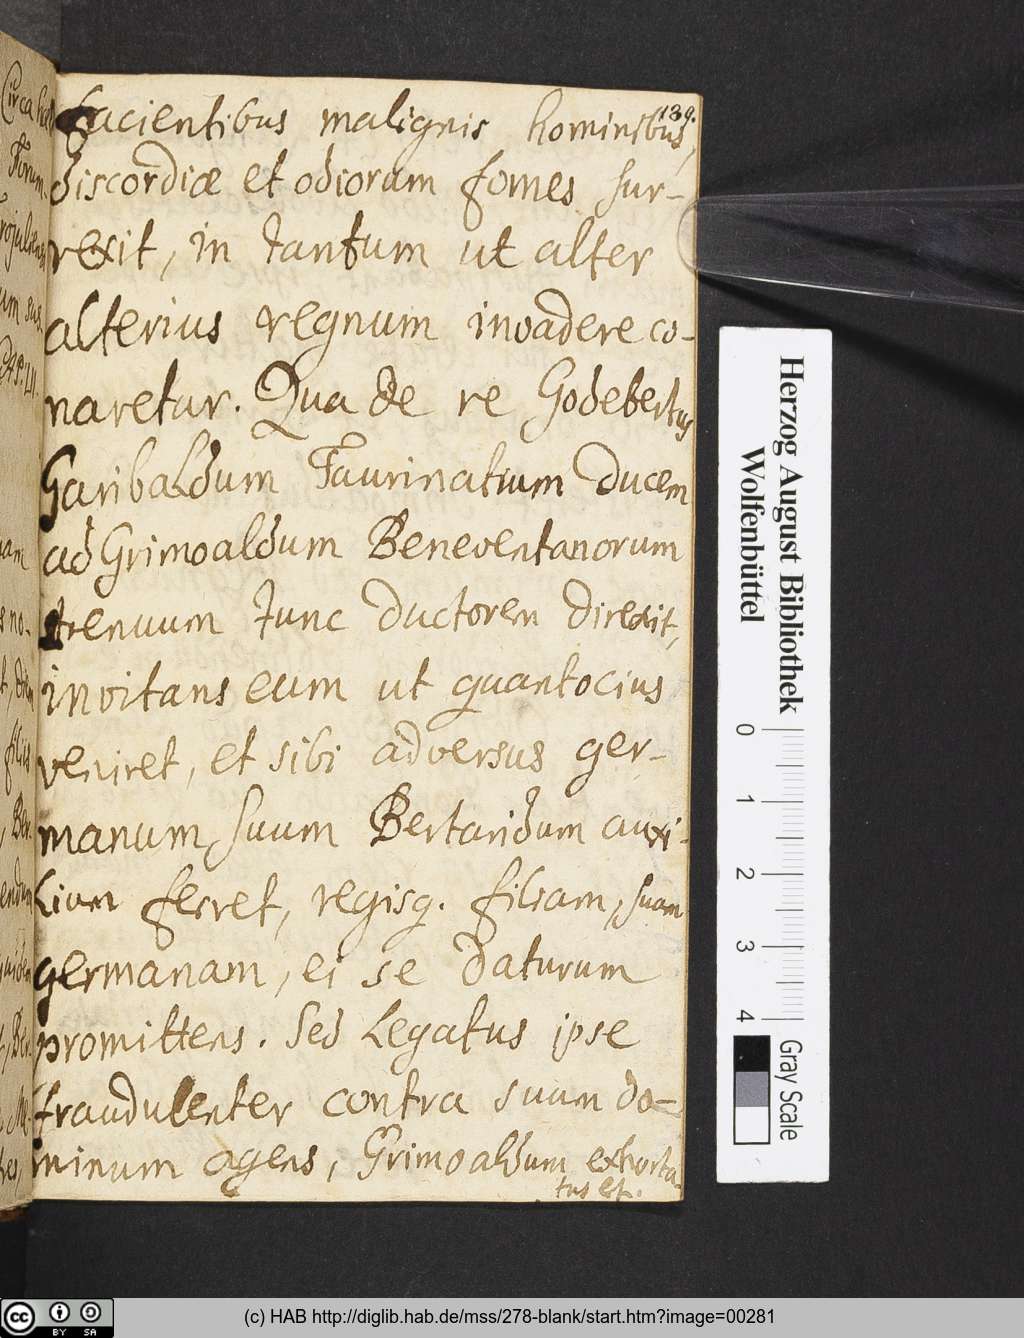 139.
facientibus malignis hominibus,
discordiæ et odiorum fomes sur-
rexit, in tantum ut alter
alterius regnum invadere co-
naretur. Qua de re Godebertus
Garibaldum Taurinatium ducem
ad Grimoaldum Beneventanorum
strenuum tunc ductorem direxit,
invitans eum ut quantocius
veniret, et sibi adversus ger-
manum suum Bertaridum auxi-
lium ferret, regisq. filiam, suam
germanam, ei se daturum
promittens. Sed Legatus ipse
fraudulenter contra suum do-
minum agens, Grimoaldum exhorta-
tus est.
Herzog August Bibliothek
Wolfenbüttel
0 1 2 3 4
Gray Scale
cc BY SA
(c) HAB http://diglib.hab.de/mss/278-blank/start.htm?image=00281